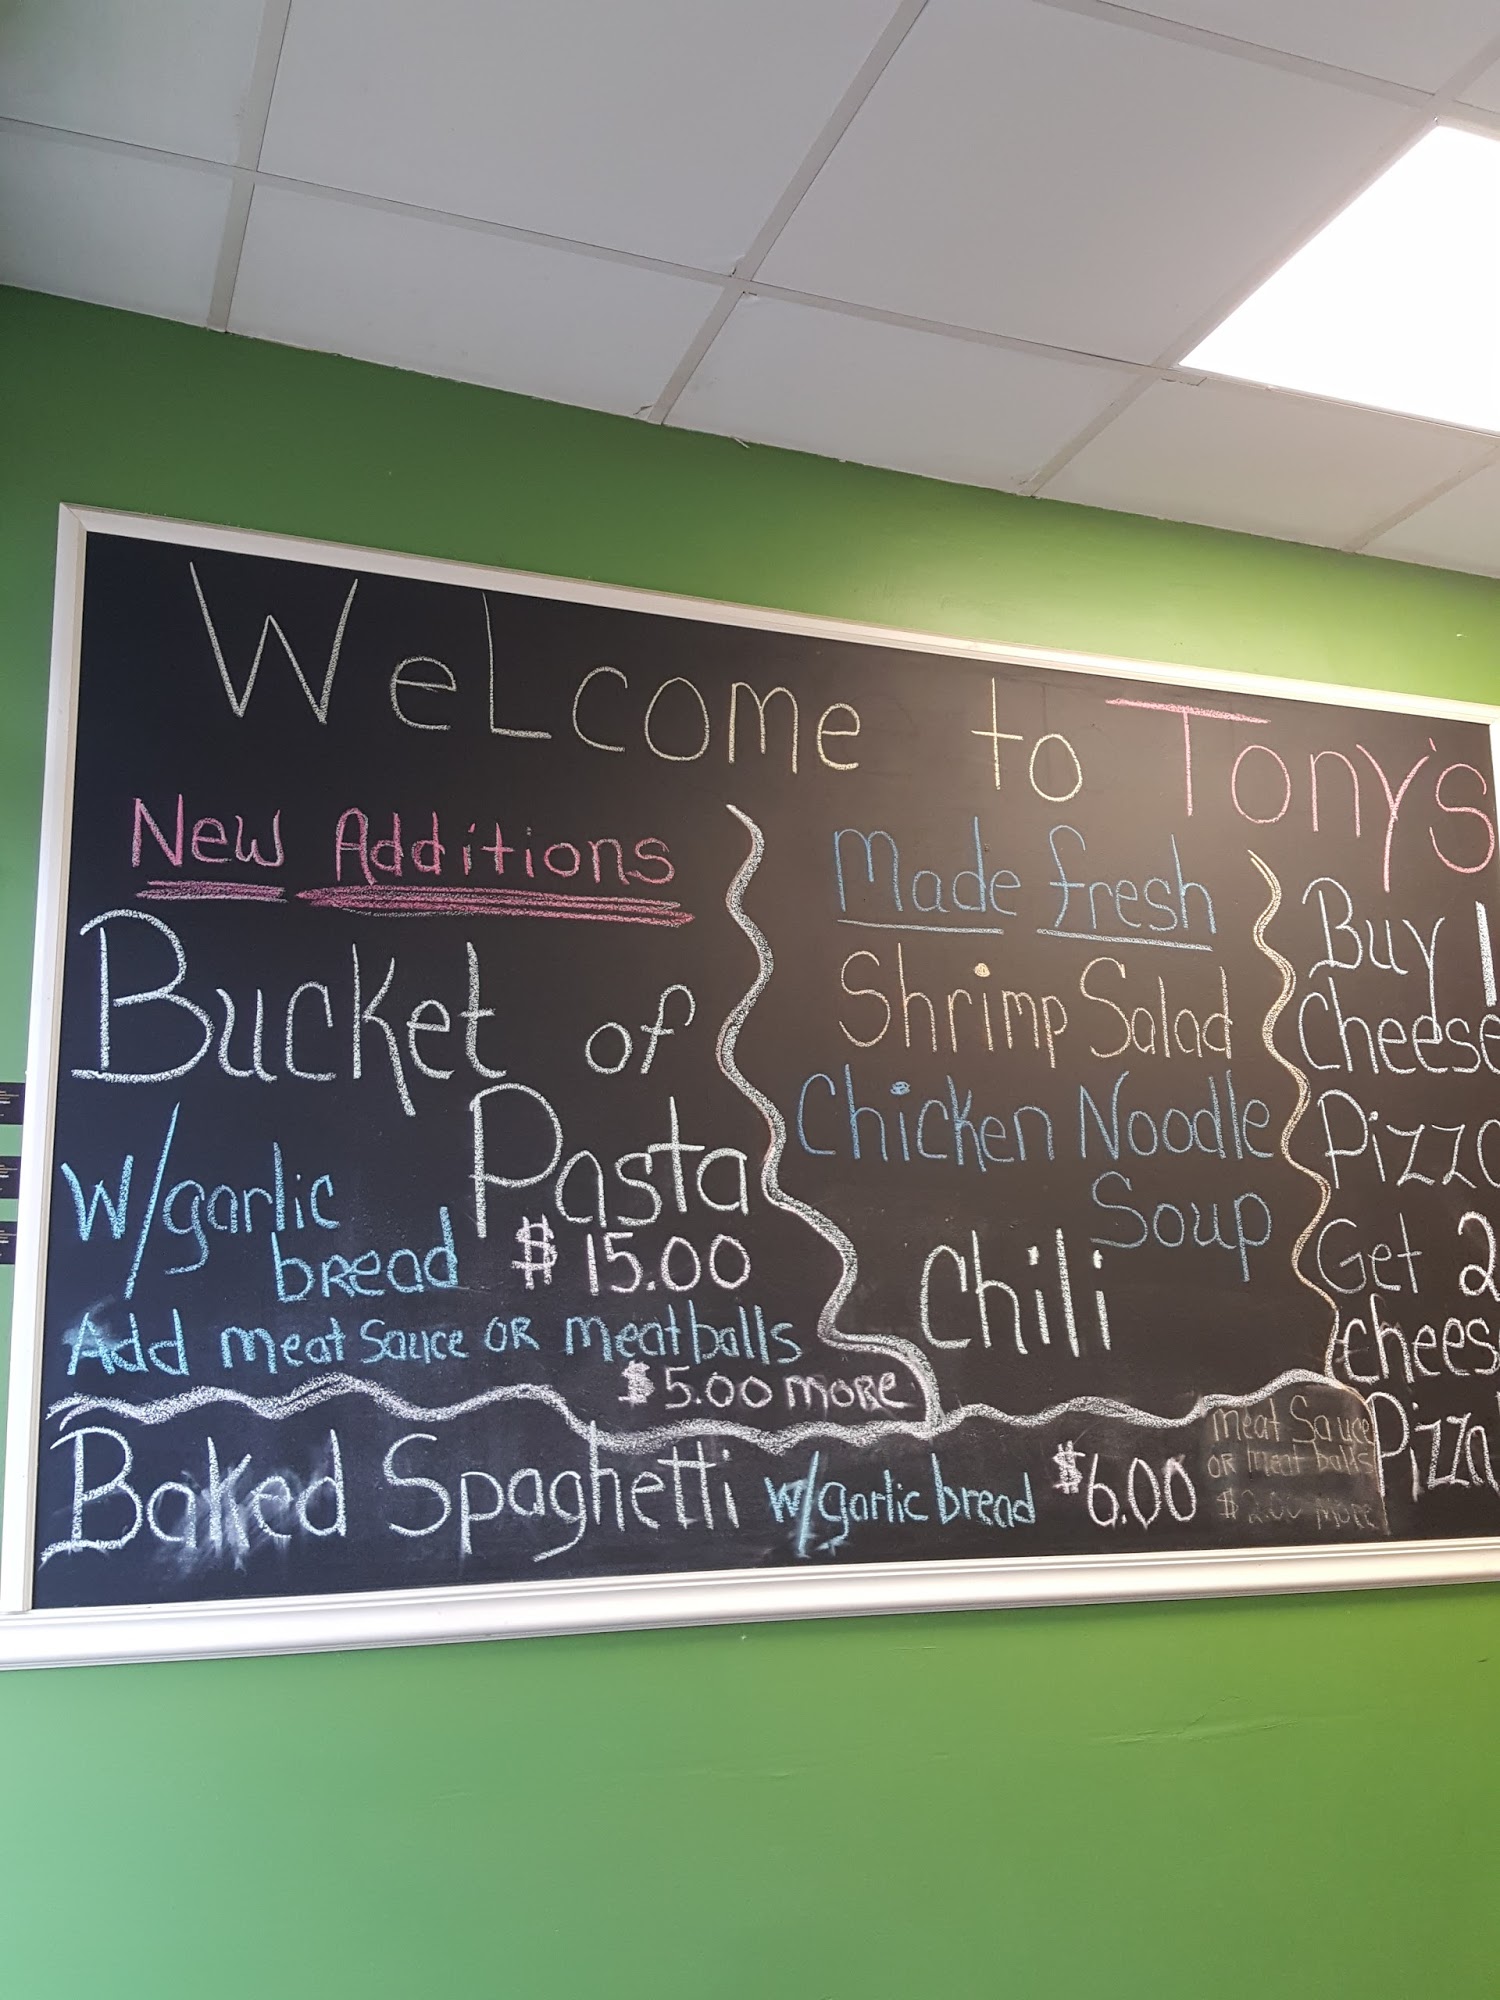 WeLcome to Tony's
New Additions
Bucket of
Pasta
w/garlic
bread $15.00
Add meat sauce OR meatballs
$5.00 more
Made fresh
Shrimp Salad
Chicken Noodle
Soup
Chili
Buy 1
Cheese
Pizza
Get 2
cheese
Pizza
Baked Spaghetti w/garlic bread $6.00
meat Sauce
OR meat balls
$2.00 more